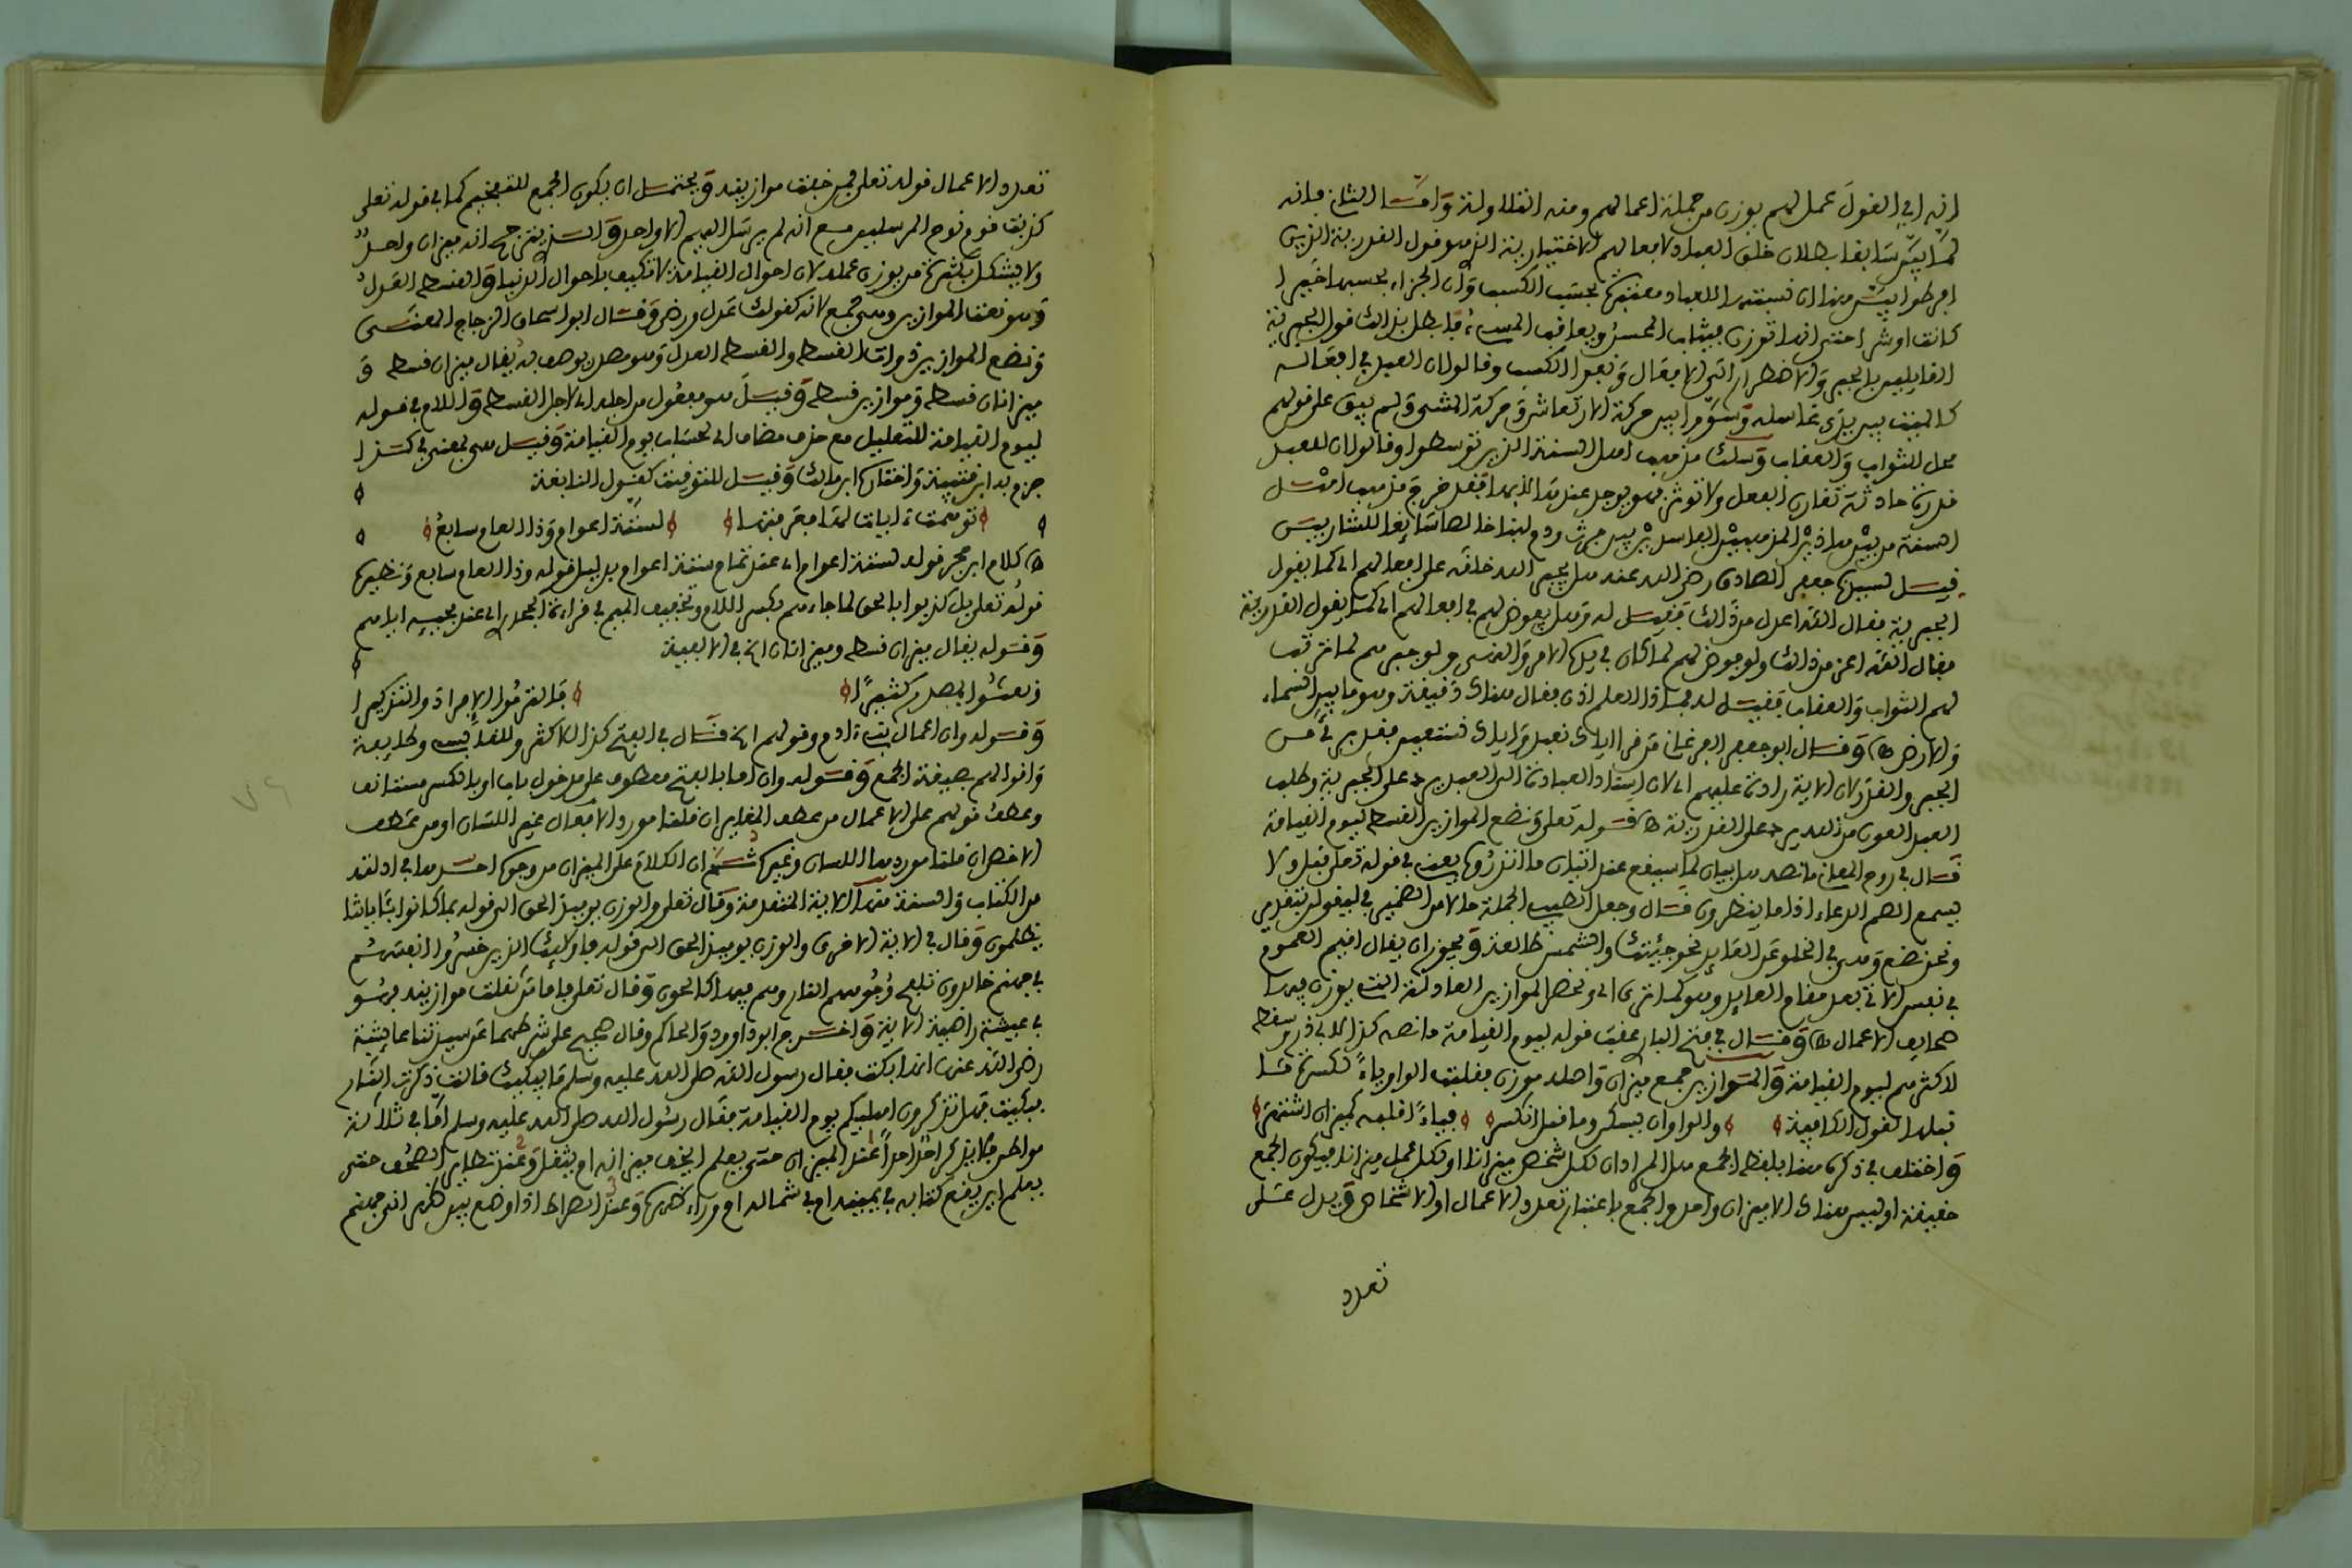 انه اي القول عمل لهم يوزن من جملة اعمالهم ومنه اقلا ولذ وأما الثاني فانه
لما بين سابقا بطلان خلق العباد لافعالهم الاختيارية الذي هو قول القدرية الذين
افرطوا بين هنا ان نسبتها للعباد معتبرة بحسب الكسب وان الجزاء بحسبها خيرا
كانت او شرا حتى انها توزن فيثاب المحسن ويعاقب المسيء فأبطل بذلك قول الجبرية
القايلين بالجبر والاضطرار اي الافعال ونفوا الكسب وقالوا ان العبد في افعاله
كالميت بين يدي غاسله وسووا بين حركة الارتعاش وحركة المشي ولم يبق على قولهم
محل للثواب والعقاب وسلك مذهب اهل السنة الذين توسطوا وقالوا ان للعبد
قدرة حادثة تقارن الفعل ولا توثر فهو يوجد عندها لا بها فقد خرج مذهب اهل
السنة من بين هاذين المذهبين الفاسدين من بين فرث ودم لبنا خالصا سائغا للشاربين
قيل لسيدنا جعفر الصادق رضي الله عنه هل يجبر الله خلقه على افعالهم اي كما يقول
الجبرية فقال الله اعدل من ذالك فقيل له وهل يفوض لهم في افعالهم اي كما يقول القدرية
فقال الله اعز من ذالك ولو فوض لهم لما كان في يدها الامر والنهي ولو جبرهم لما ترتب
لهم الثواب والعقاب فقيل له فماذا العلم اذن فقال هناك دقيقة وهو ما بين السماء
والارض ه وقال ابو جعفر الفرغاني من قرا اياك نعبد واياك نستعين فقد بريء من
الجبر والقدر لان الاية رادة عليهم اي لان اسناد العبادة الى العبد يرد على الجبرية وطلب
العبد العون من الله يرد على القدرية ه قوله تعلى ونضع الموازين القسط ليوم القيامة
قال في روح المعاني ما نصه بيان لما سيقع عند اتيان ما انذروه يعني في قوله تعلى قبل ولا
يسمع الصم الدعاء اذا ما ينظرون قال وجعل الطيبي الجملة حالا من الضمير في ليقولن بتقدير
ونحن نضع وهي في الخلو عن العايد نحو جئتك والشمس طالعة ويجوز ان يقال اقيم العموم
في نفس الاتي بعد مقام العايد وهو كما ترى اي ونحضر الموازين العادلة التي يوزن بها
صحايف الاعمال ه وقال في فتح البار عقب قوله ليوم القيامة ما نصه كذا لابي ذر وسقط
لاكثرهم ليوم القيامة والموازين جمع ميزان واصله موزن فقلبت الواو ياء لكسرة ما
قبلها لقول الكافية والواو ان يسكن وما قبل انكسر فياء اقلبه كميزان اشتهر
واختلف في ذكره هنا بلفظ الجمع هل المراد ان لكل شخص ميزانا او لكل عمل ميزانا فيكون الجمع
حقيقة او ليس هناك الا ميزان واحد والجمع باعتبار تعدد الاعمال او الاشخاص ويدل على
تعدد
تعدد الاعمال قوله تعلى فمن خفت موازينه ويحتمل ان يكون الجمع للتفخيم كما في قوله تعلى
كذبت قوم نوح المرسلين مع انه لم يرسل اليهم الا واحد والذي يترجح انه ميزان واحد
ولا يشكل بكثرة من يوزن عمله لان احوال القيامة لا تكيف باحوال الدنيا والقسط العدل
وهو نعت الموازين وهي جمع لانه كقولك عدل ورضى وقال ابو اسحاق الزجاج المعنى
ونضع الموازين ذوات القسط والقسط العدل وهو مصدر يوصف به يقال ميزان قسط و
ميزانان قسط وموازين قسط وقيل هو مفعول من اجله اي لاجل القسط واللام في قوله
ليوم القيامة للتعليل مع حذف مضاف اي لحساب يوم القيامة وقيل هي بمعنى في كذا
جزم به ابن قتيبة واختاره ابن مالك وقيل للتوقيت كقول النابغة
توهمت ءايات لها فعرفتها لستة اعوام وذا العام سابع
ه كلام ابن حجر قوله لستة اعوام اي عند تمام ستة اعوام بدليل قوله وذا العام سابع ونظيره
قوله تعلى بل كذبوا بالحق لما جاءهم بكسر اللام وتخفيف الميم في قراءة الجحدري اي عند مجيئه اياهم
وقوله يقال ميزان قسط وميزانان الخ في الالفية
ونعتوا بمصدر كثيرا فالتزموا الافراد والتذكيرا
وقوله وان اعمال بني ءادم وقولهم الخ قال في الفتح كذا للاكثر وللقابسي وطايفة
واقوالهم بصيغة الجمع وقوله وان اما بالفتح معطوف على مدخول باب او بالكسر مستانف
وعطف قولهم على الاعمال من عطف المغاير ان قلنا مورد الافعال غير اللسان او من عطف
الاخص ان قلنا موردها اللسان وغيره ثم ان الكلام على الميزان من وجوه احدها في ادلته
من الكتاب والسنة منها الاية المتقدمة وقال تعلى والوزن يوميذ الحق الى قوله بما كانوا بئاياتنا
يظلمون وقال في الاية الاخرى والوزن يوميذ الحق الى قوله فاولئك الذين خسروا انفسهم
في جهنم خالدون تلفح وجوههم النار وهم فيها كالحون وقال تعلى فاما من ثقلت موازينه فهو
في عيشة راضية الاية واخرج ابو داوود والحاكم وقال صحيح على شرطهما عن سيدتنا عايشة
رضي الله عنها انها بكت فقال رسول الله صلى الله عليه وسلم ما يبكيك قالت ذكرت النار
فبكيت فهل تذكرون اهليكم يوم القيامة فقال رسول الله صلى الله عليه وسلم اما في ثلاثة
مواطن فلا يذكر احد احدا عند الميزان حتى يعلم ايخف ميزانه ام يثقل وعند تطاير الصحف حتى
يعلم اين يقع كتابه في يمينه ام في شماله ام وراء ظهره وعند الصراط اذا وضع بين ظهراني جهنم